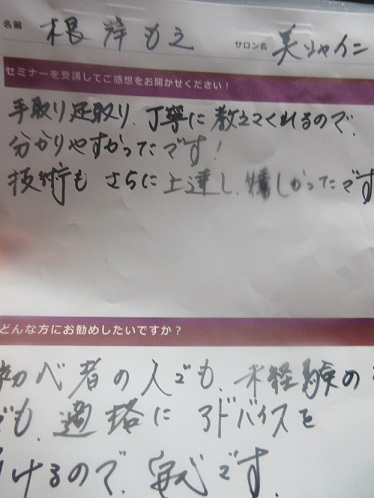 名前 根岸もえ サロン名 美シャイニ
セミナーを受講してご感想をお聞かせください！
手取り足取り、丁寧に教えてくれるので、
分かりやすかったです！
技術も さらに上達し、嬉しかったです
どんな方にお勧めしたいですか？
初心者の人でも、未経験の
でも、適格に アドバイスを
けるので、安心です。